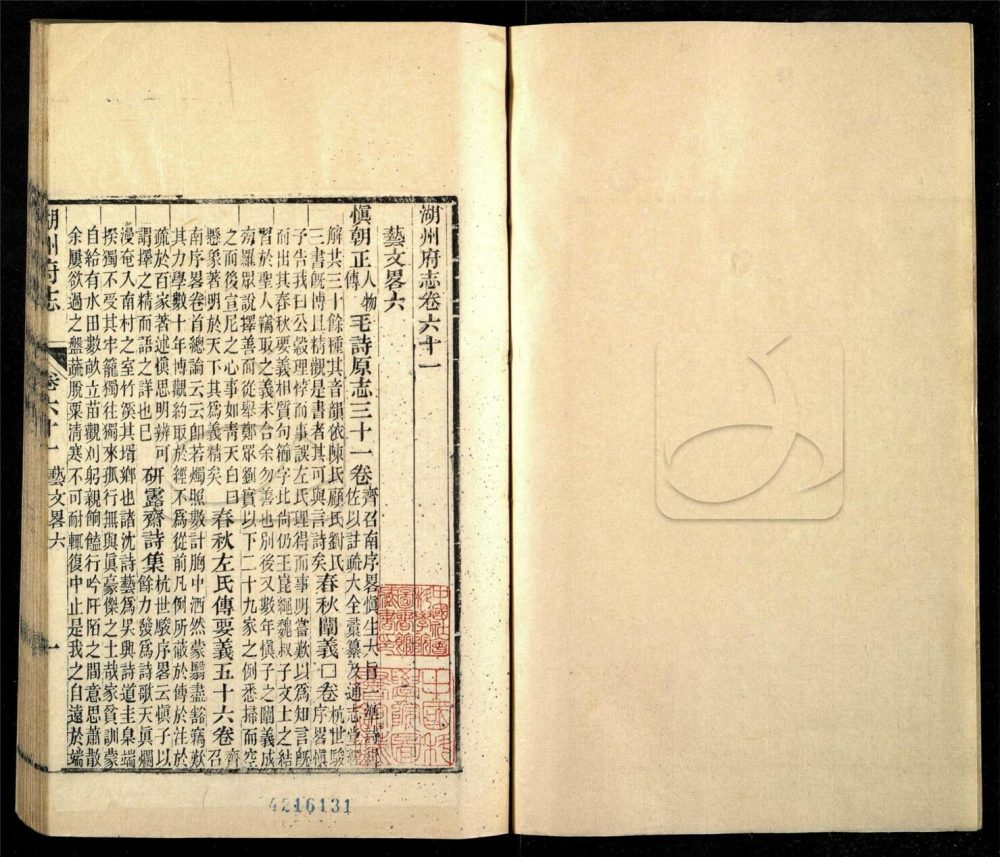 湖州府志卷六十一
藝文畧六
慎朝正人物傳 毛詩原志三十一卷齊召南序畧慎生大旨一準詩緝佐以註疏大全彙纂及通志堂經
解共三十餘種其音韻依陳氏顧氏劉氏春秋闡義口卷杭世駿序畧慎
三書既博且精觀是書者其可與言詩矣
予告我曰公穀理悖而事誤左氏理得而事明嘗歎以為知言既
而出其春秋要義相質句櫛字比尚仍王崑繩魏叔子文士之結
習於聖人竊取之義未合余勿善也別後又數年慎子之闡義成
洶羅眾說擇善而從舉鄭眾劉實以下二十九家之例悉掃而空
之而後宣尼之心事如青天白日
懸象著明於天下其為義精矣 春秋左氏傳要義五十六卷齊召
南序畧卷首總論云云卽若燭照數計胸中洒然蒙翳盡豁竊歎
其力學數十年博觀約取於經不為從前凡例所蔽於傳於注於
疏於百家著述慎思明辨可
謂擇之精而語之詳也巳 研露齋詩集杭世駿序畧云慎子以餘力發為詩歌天眞爛
漫奄入南村之室竹溪其壻鄉也諸沈詩藝為吳興詩道圭臬端
揆獨不受其牢籠獨往獨來孤行無與眞豪傑之士哉家貧訓蒙
自給有水田數畝立苗觀刈躬親餉饁行吟阡陌之間意思蕭散
余屢欲過之盤蔬脫粟清寒不可耐輒復中止是我之自遠於端
湖州府志
卷六十一
藝文畧六
一
4216131